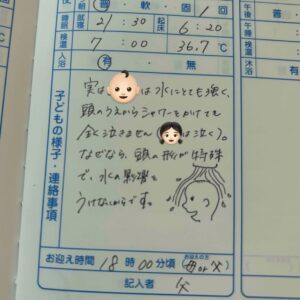 便 普・軟・固 1回
睡眠 就寝 21:30 起床 6:20
検温 7:00 36.7℃
入浴 有・無
子どもの様子・連絡事項
実は は水にとても強く、
頭のうえからシャワーをかけても
全く泣きません( は泣く)。
なぜなら、頭の形が特殊
で、水の影響を
うけないからです。
お迎え時間 18時00分頃 お迎えの方 (母or父)
記入者 父
普
午前
午後
睡眠
検温
沐浴